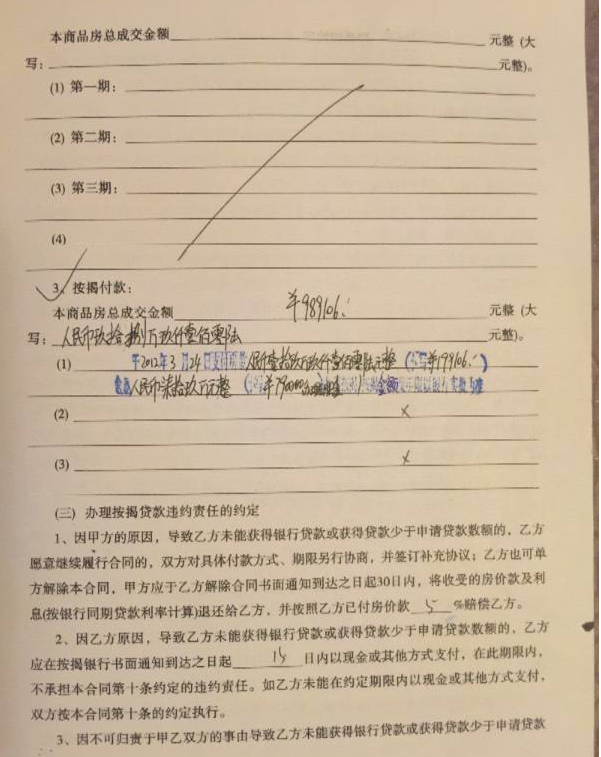 本商品房总成交金额 元整 (大
写: 元整)。
(1) 第一期:
(2) 第二期:
(3) 第三期:
(4)
3、按揭付款:
本商品房总成交金额 ￥989106.: 元整 (大
写: 人民币玖拾捌万玖仟壹佰零陆 元整)。
(1) 于2012年3月24日支付 人民币壹拾玖万玖仟壹佰零陆元整 (小写￥199106.:)
人民币柒拾玖万元整 ￥790000 金额
(2) ×
(3) ×
(三) 办理按揭贷款违约责任的约定
1、因甲方的原因，导致乙方未能获得银行贷款或获得贷款少于申请贷款数额的，乙方
愿意继续履行合同的，双方对具体付款方式、期限另行协商，并签订补充协议；乙方也可单
方解除本合同，甲方应于乙方解除合同书面通知到达之日起30日内，将收受的房价款及利
息(按银行同期贷款利率计算)退还给乙方，并按照乙方已付房价款 5 %赔偿乙方。
2、因乙方原因，导致乙方未能获得银行贷款或获得贷款少于申请贷款数额的，乙方
应在按揭银行书面通知到达之日起 15 日内以现金或其他方式支付，在此期限内，
不承担本合同第十条约定的违约责任。如乙方未能在约定期限内以现金或其他方式支付，
双方按本合同第十条的约定执行。
3、因不可归责于甲乙双方的事由导致乙方未能获得银行贷款或获得贷款少于申请贷款